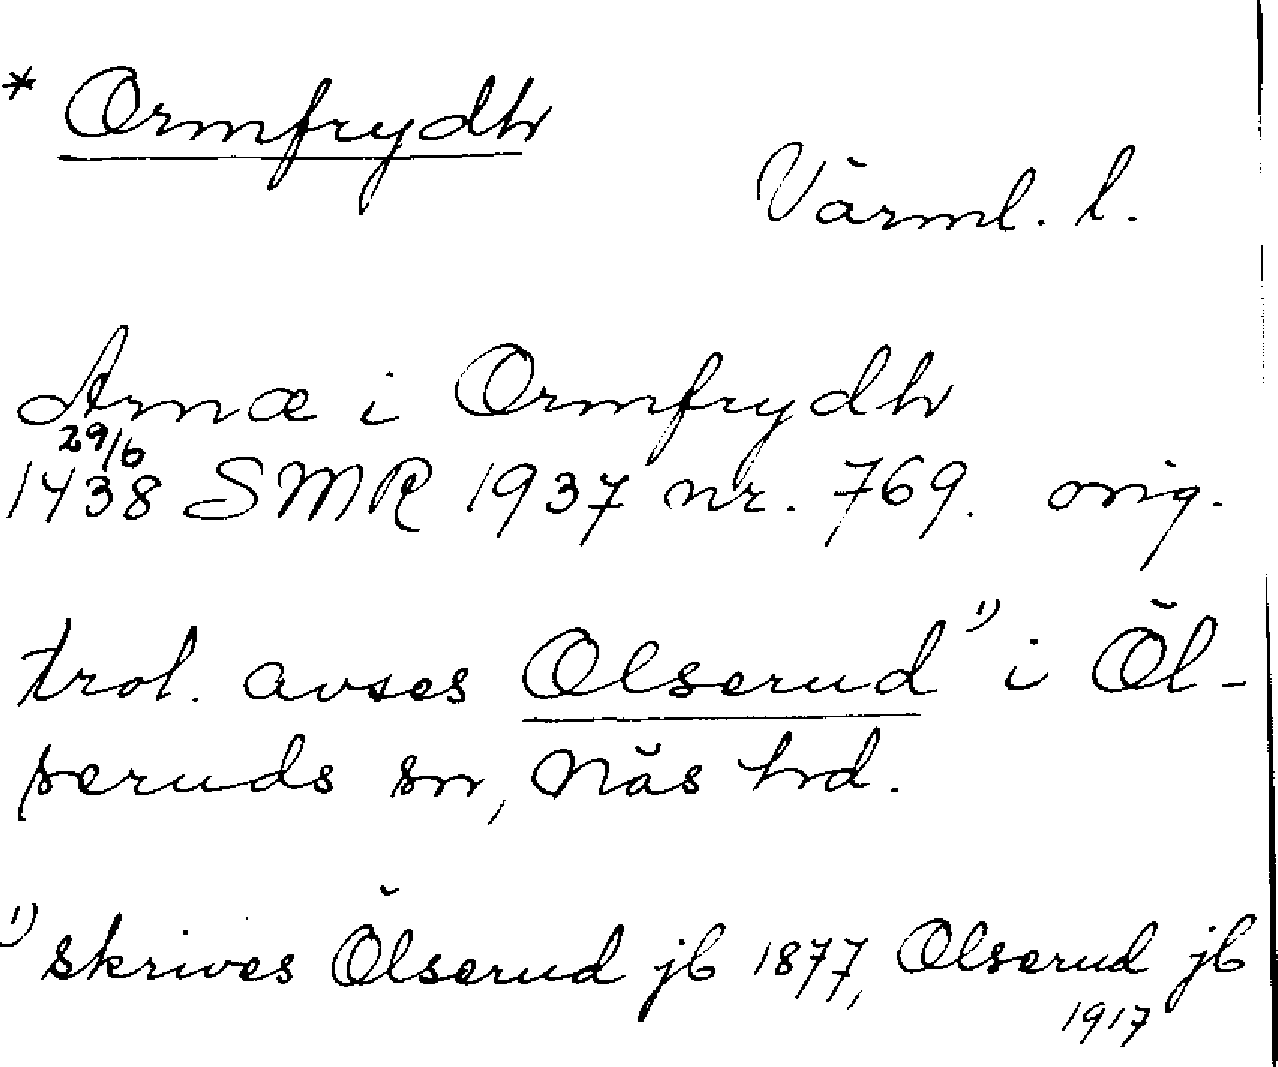 * Ormfrydh
Värml. l.
Arnæ i Ormfrydh
29/6
1438 SMR 1937 nr. 769. orig.
trol. avses Olserud ¹⁾ i Öl-
seruds sn, Näs hd.
¹⁾ skrives Ölserud jb 1877, Olserud jb
1917